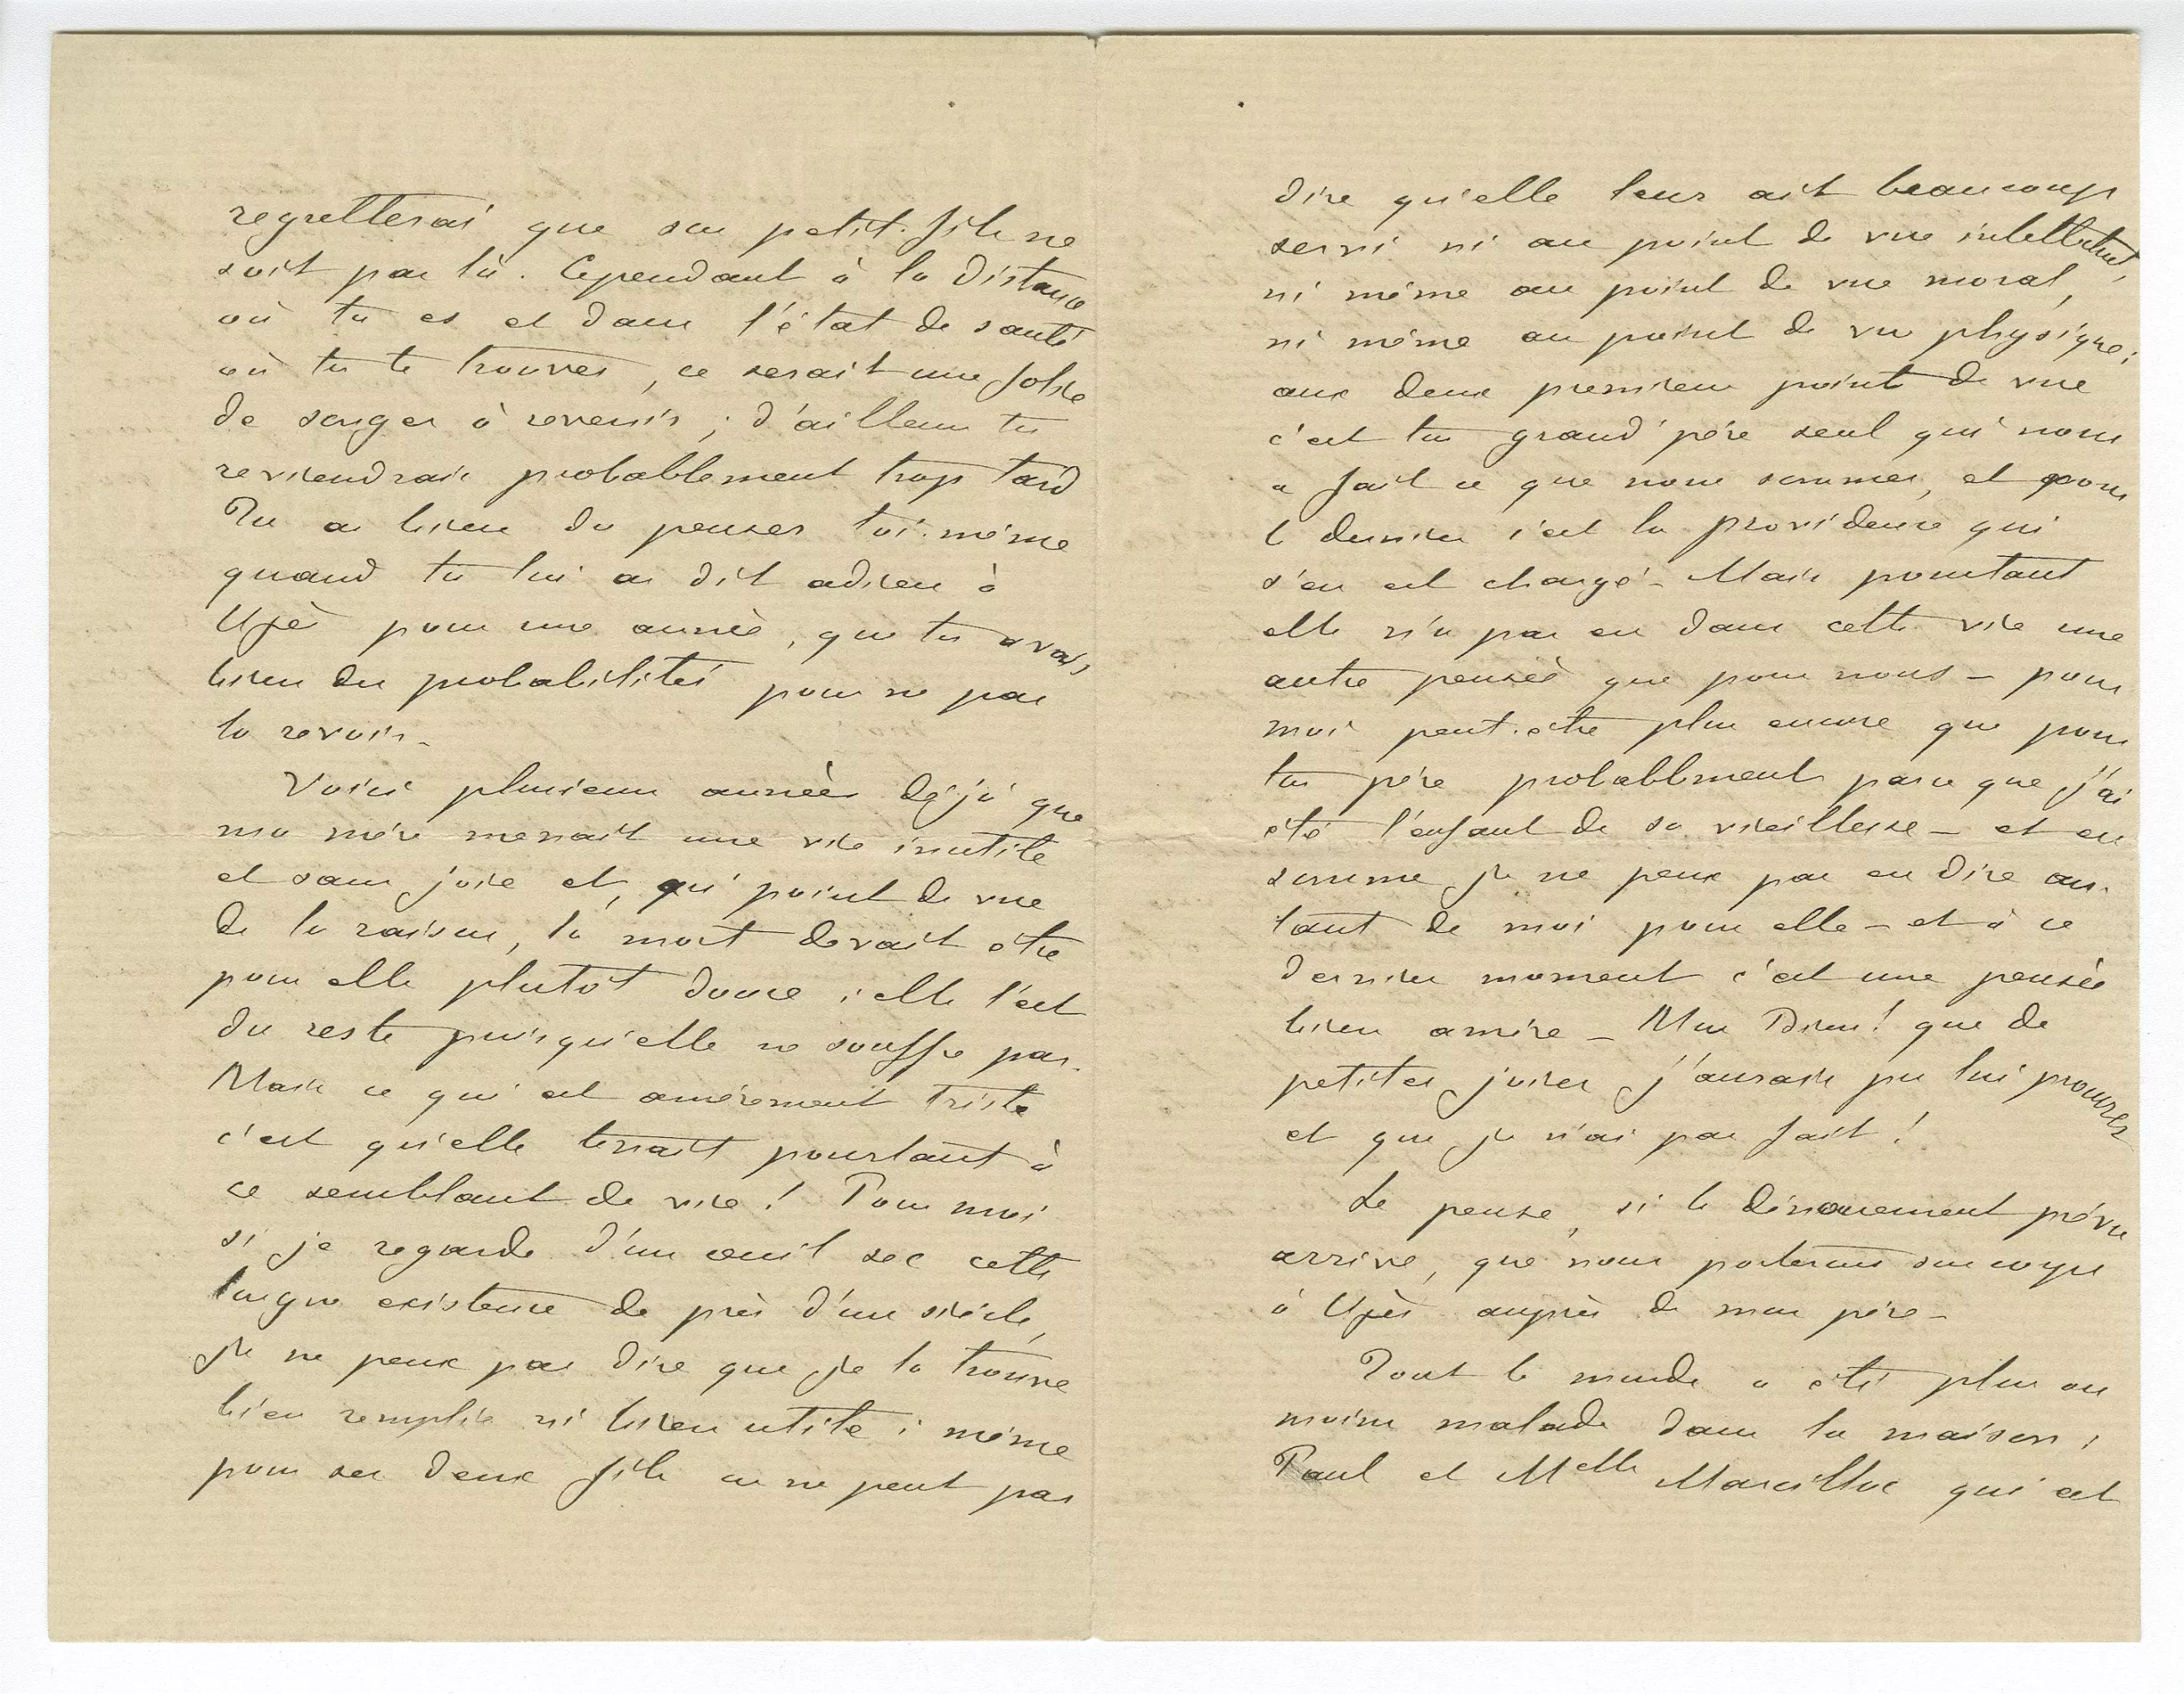 regretterai que son petit-fils ne
soit pas là. Cependant à la distance
où tu es et dans l'état de santé
où tu te trouves, ce serait une folie
de songer à revenir ; d'ailleurs tu
reviendrais probablement trop tard
Tu as bien du penser toi-même
quand tu lui as dit adieu à
Uzès pour une année, que tu avais
bien des probabilités pour ne pas
la revoir _
Voici plusieurs années déjà que
ma mère menait une vie inutile
et sans joie et, qu' point de vue
de la raison, la mort devait être
pour elle plutôt douce ; elle l'est
du reste puisqu'elle ne souffre pas.
Mais ce qui est amèrement triste
c'est qu'elle tenait pourtant à
ce semblant de vie ! Pour moi
si je regarde d'un œuil sec cette
longue existence de près d'un siècle,
je ne peux pas dire que je la trouve
bien remplie ni bien utile ; même
pour ses deux fils on ne peut pas
dire qu'elle leur ait beaucoup
servi ni au point de vue intellectuel,
ni même au point de vue moral,
ni même au point de vue physique ;
aux deux premiers point de vue
c'est ton grand'père seul qui nous
a fait ce que nous sommes, et pour
le dernier c'est la providence qui
s'en est chargé _ Mais pourtant
elle n'a pas eu dans cette vie une
autre pensée que pour nous _ pour
moi peut-être plus encore que pour
ton père probablement parce que j'ai
été l'enfant de sa vieillesse _ et en
somme je ne peux pas en dire au-
tant de moi pour elle _ et à ce
dernier moment c'est une pensée
bien amère _ Mon Dieu ! que de
petites joies j'aurais pu lui procurer
et que je n'ai pas fait !
Je pense, si le dénouement prévu
arrive, que nous porterons son corps
à Uzès auprès de mon père _
Tout le monde a été plus ou
moins malade dans la maison ;
Paul et Melle Marcillac qui est